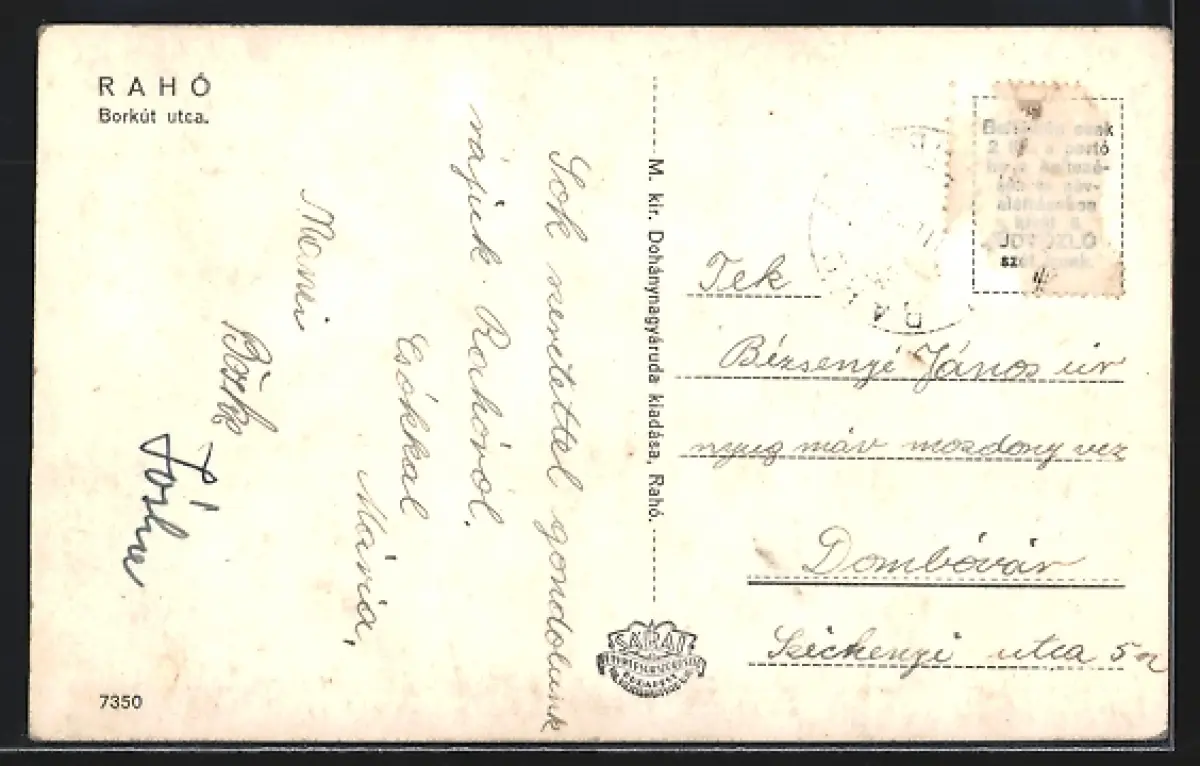 RAHÓ
Borkút utca.
Sok szeretettel gondolunk
rájuk Rahóról.
Csókkal
Mária,
Manci
Böske
7350
M. kir. Dohánynagyáruda kiadása, Rahó.
2
portó
ÜDVÖZLŐ
Tek
Bézsenyi János úr
nyug máv mozdony vez
Dombóvár
Széchenyi utca 5